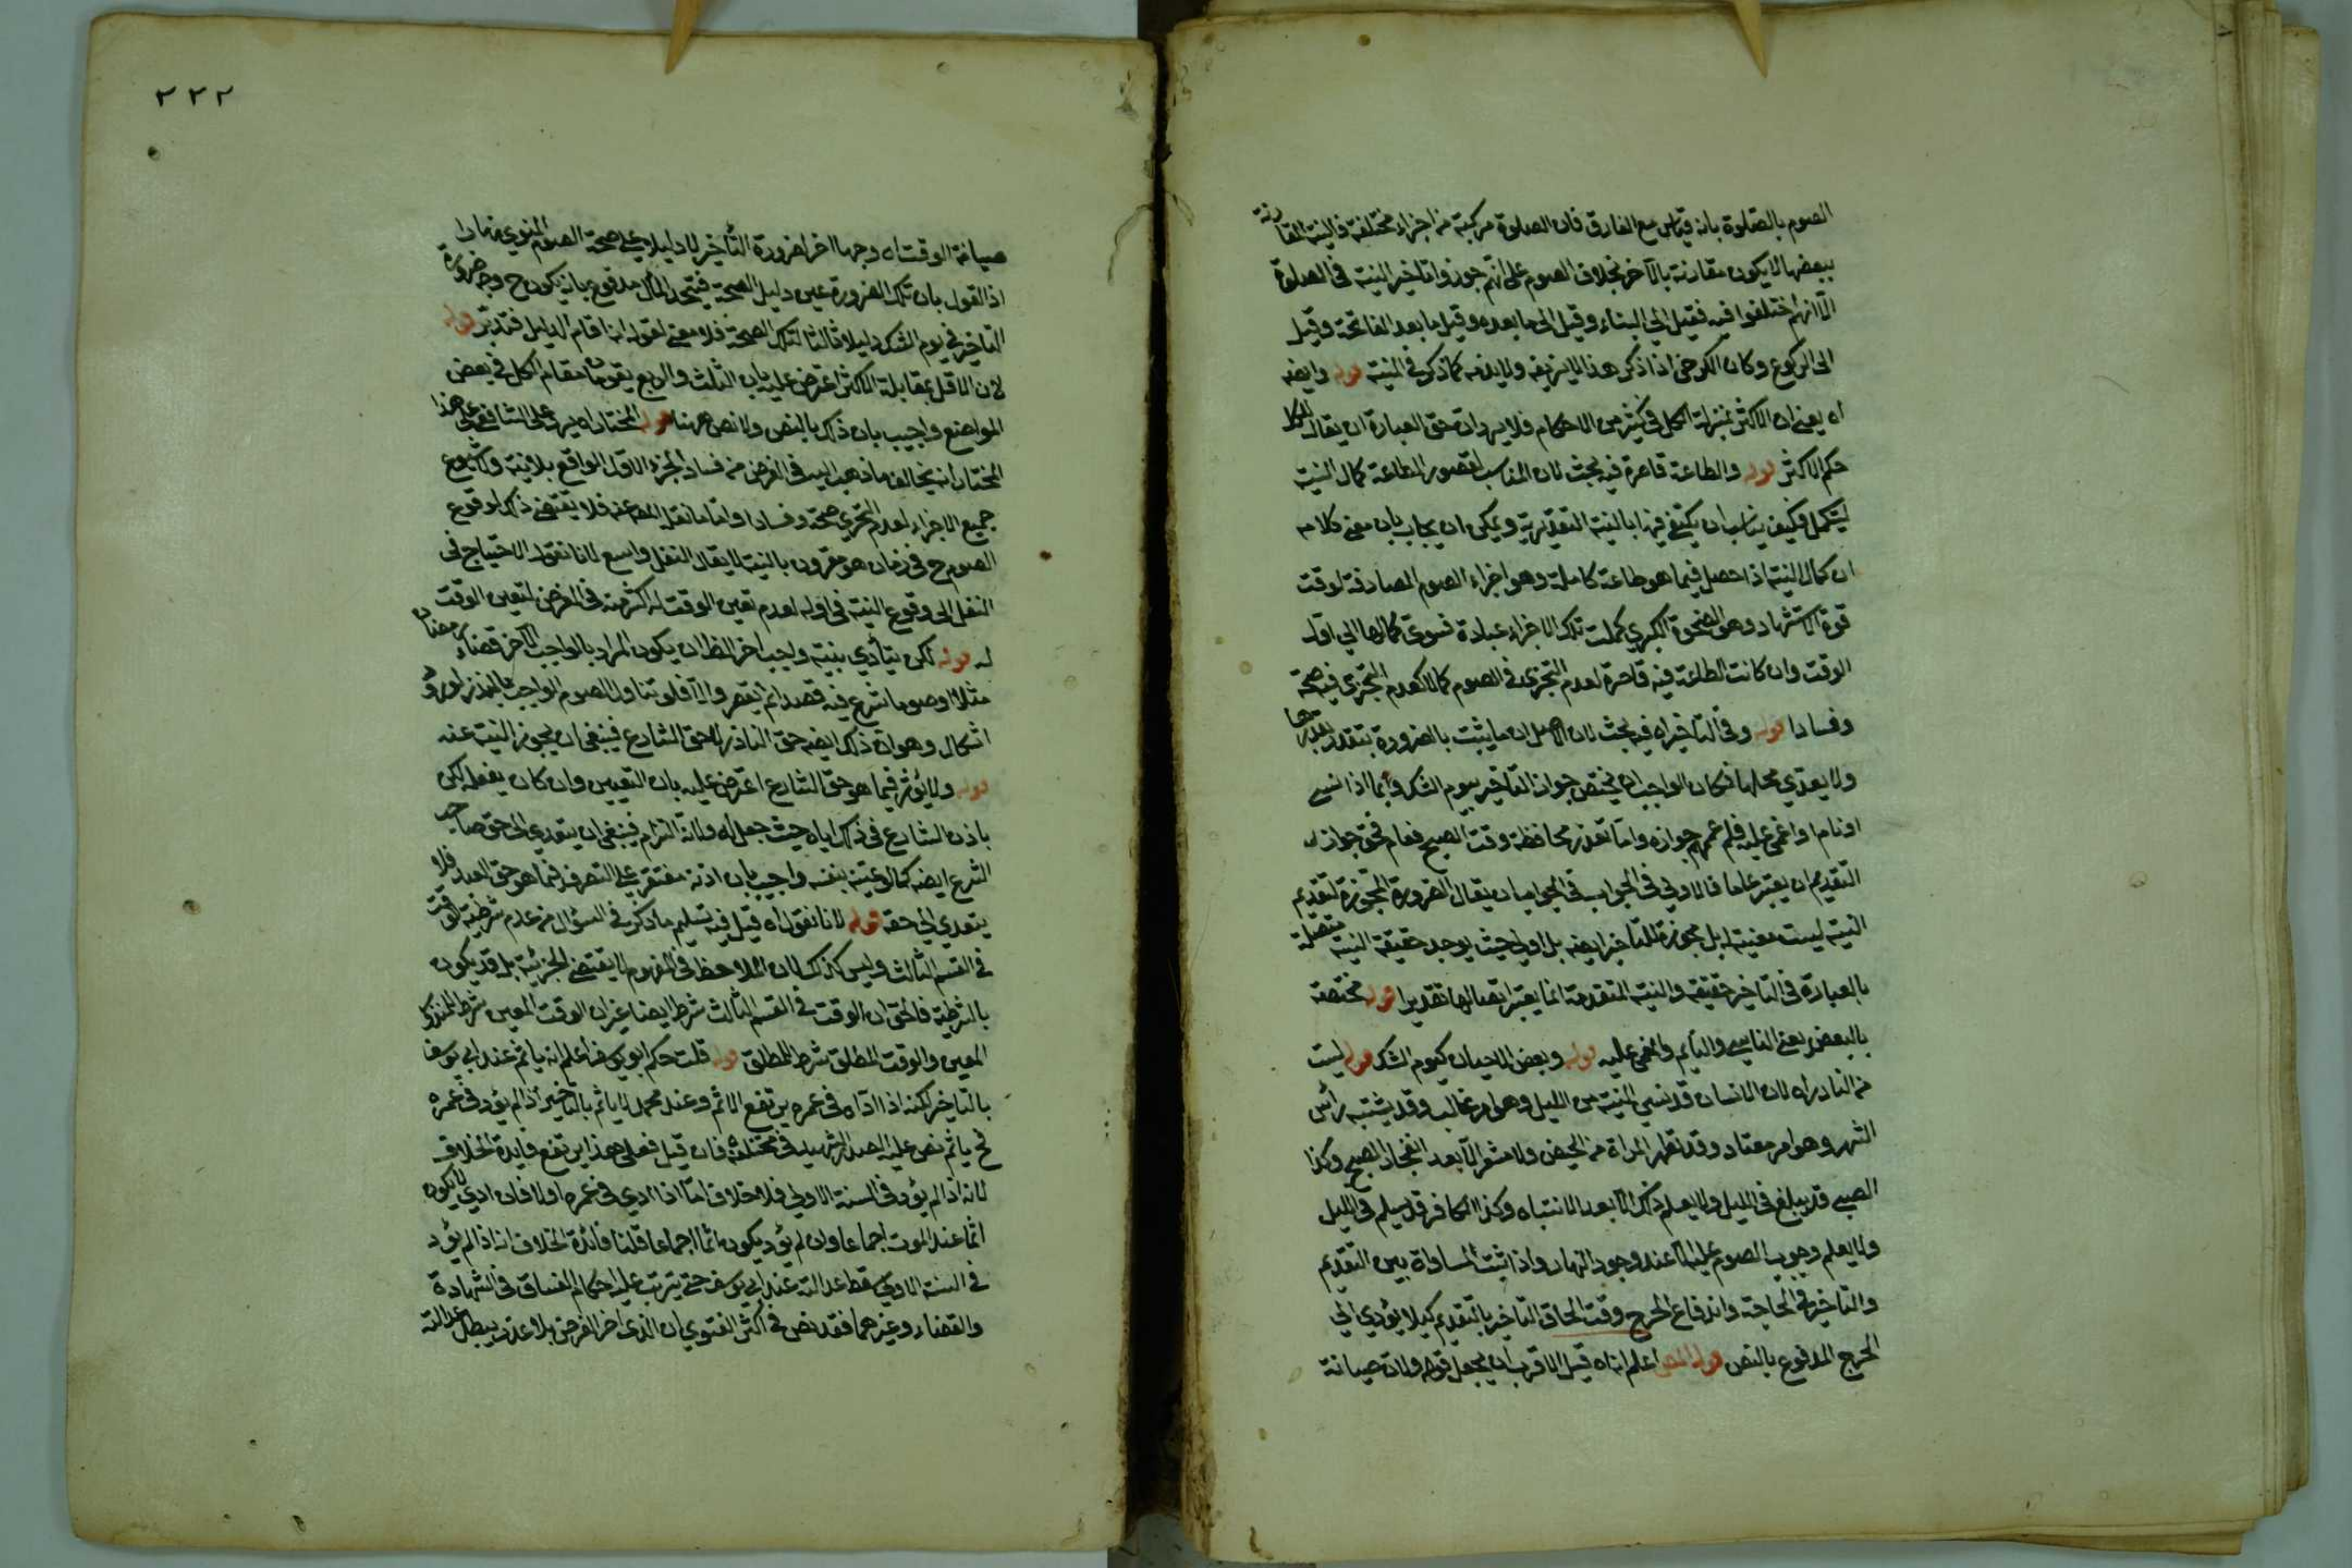 الصوم بالصلوة بانه قياس مع الفارق فان الصلوة مركبة من اجزاء مختلفة فالنية المقارنة
ببعضها لا يكون مقارنة بالآخر بخلاف الصوم على انهم جوزوا تاخير النية فى الصلوة
الا انهم اختلفوا فيه فقيل الى الثناء وقيل الى ما بعده وقيل ما بعد الفاتحة وقيل
الى الركوع وكان الكرخى اذا ذكر هذا لا يزيفه ولا يدفعه كما ذكر فى النية قوله وايضه
اه يعنى ان الاكثر بمنزلة الكل فى كثير من الاحكام فلا يرد ان حق العبارة ان يقال للكل
حكم الاكثر قوله والطاعة قاصرة فيه بحث لان المناسب لقصور الطاعة كمال النية
ليتكمل فكيف يناسب ان يكتفى فيها بالنية التقديرية ويمكن ان يجاب بان معنى كلامه
ان كمال النية اذا حصل فيما هو طاعة كاملة وهو اجزاء الصوم المصادفة لوقت
قوة الاشتهاء وهو الضحوة الكبرى كملت تلك الاجزاء عبادة فسوى كمالها الى اول
الوقت وان كانت الطاعة فيه قاصرة لعدم التجزى فى الصوم كمالا كعدم التجزى فيه صحة
وفسادا قوله وفى التاخير اه فيه بحث لان الاصل ان ما يثبت بالضرورة يتقدر بقدرها
ولا يعدى محلها فكان الواجب ان يختص جواز التاخير بيوم الشك وبما اذا نسى
او نام او اغمى عليه فلم عمم جوازه واما تعذر محافظة وقت الصبح فعام فحق جواز
التقديم ان يعتبر عاما فالاولى فى الجواب ان يقال الضرورة المجوزة لتقديم
النية ليست معينة له بل مجوزة للتاخير ايضه بل اولى حيث يوجد حقيقة النية متصلة
بالعبادة فى التاخير حقيقة والنية المتقدمة انما يعتبر اتصالها تقديرا قوله مختصة
بالبعض يعنى الناسى والنائم والمغمى عليه قوله وبعض الاحيان كيوم الشك قوله ليست
من النادر اه لان الانسان قد نسى النية من الليل وهو امر غالب وقد يشتبه رأس
الشهر وهو امر معتاد وقد تطهر المراة من الحيض ولا تشعر الا بعد انفجار الصبح وكذا
الصبى قد يبلغ فى الليل ولا يعلم ذلك الا بعد الانتباه وكذا الكافر قد يسلم فى الليل
ولا يعلم وجوب الصوم عليه الا عند وجود النهار واذا ثبت المساواة بين التقديم
والتاخير فى الحاجة واندفاع الحرج وقت الحاق التاخير بالتقديم كيلا يؤدى الى
الحرج المدفوع بالنص قوله المص اعلم انه اه قيل الاقرب ان يجعل قوله ولان صيانة
٢٢٢
صيانة الوقت اه وجها اخر لضرورة التأخير لا دليلا على صحة الصوم المنوى نهارا
اذ القول بان تلك الضرورة عين دليل الصحة فيتحد المآل مدفوع بانه يكون ح وجه ضرورة
التاخير فى يوم الشك دليلا ثالثا لتلك الصحة فلا معنى لقوله انا اقام الدليل فتدبر قوله
لان الاقل بمقابلة الاكثر اعترض عليه بان الثلث والربع يقومان مقام الكل فى بعض
المواضع واجيب بان ذلك بالنص ولا نص ههنا قوله المختار اه يرد على الشافعى على هذا
المختار انه يخالف ما ذهب اليه فى الفرض من فساد الجزء الاول الواقع بلا نية وشيوع
جميع الاجزاء لعدم التجزى صحة وفسادا واما ما نقل المص عنه فلا يقتضى ذلك لوقوع
الصوم ح فى زمان هو مقرون بالنية لا يقال النفل واسع لانا نقول الاحتياج فى
النفل الى وقوع النية فى اوله لعدم تعين الوقت له اكثر منه فى الفرض لتعين الوقت
له قوله لكن يتأدى بنية واجب اخر الظ ان يكون المراد بالواجب الآخر قضاء رمضان
مثلا او صوما شرع فيه قصدا ثم نقص والا فلو تناول الصوم الواجب بالنذر لورد
اشكال وهو ان ذلك ايضه حق الناذر لا حق الشارع فينبغى ان يجوز النية عنه
قوله ولا يؤثر فيما هو حق الشارع اعترض عليه بان التعيين وان كان بفعله لكن
باذن الشارع فى ذلك اياه حيث جعل له ولاية التزام فينبغى ان يتعدى الى حق صاحب
الشرع ايضه كما لو عينه بنفسه واجيب بان اذنه مفتقر على التصرف فيما هو حق العبد فلا
يتعدى الى حقه قوله لانا نقول اه قيل فيه تسليم ما ذكر فى السؤال من عدم شرطية الوقت
فى القسم الثالث وليس كذلك لان الملاحظ فى المفهوم لا يقتضى الجزئية بل قد يكون
بالشرطية فالحق ان الوقت فى القسم الثالث شرط ايضا غير ان الوقت المعين شرط للمنذور
المعين والوقت المطلق شرط للمطلق قوله قلت حكم ابو يوسف اعلم انه ياثم عند ابى يوسف
بالتاخير لكنه اذا اداه فى عمره يرتفع الاثم وعند محمد لا ياثم بالتاخير اذا لم يؤد فى عمره
فح ياثم نص عليه الصدر الشهيد فى مختلفه فان قيل فعلى هذا يرتفع فايدة الخلاف
لانه اذا لم يؤد فى السنة الاولى فلا خلاف اما اذا ادى فى عمره اولا فان ادى لا يكون
اثما عند الموت اجماعا وان لم يؤد يكون اثما اجماعا قلنا فائدة الخلاف انه اذا لم يؤد
فى السنة الاولى سقط عدالته عند ابى يوسف حتى يترتب عليه احكام الفساق فى الشهادة
والقضاء وغيرهما فقد نص فى اكثر الفتوى ان الذى اخر الفرض بلا عذر يبطل عدالته